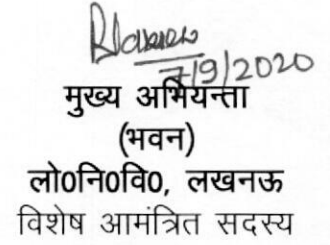 7/9/2020
मुख्य अभियन्ता
(भवन)
लो0नि0वि0, लखनऊ
विशेष आमंत्रित सदस्य